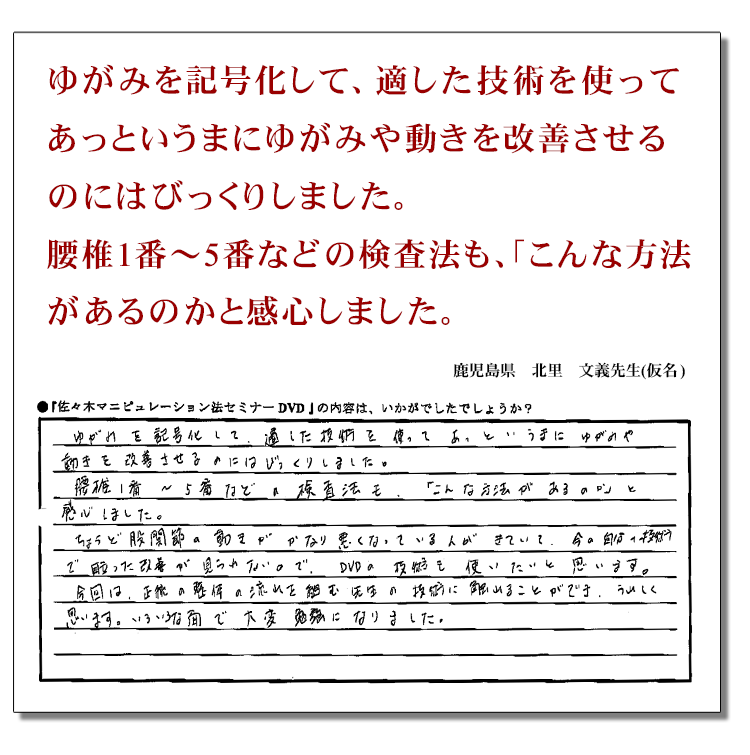 ゆがみを記号化して、適した技術を使って
あっというまにゆがみや動きを改善させる
のにはびっくりしました。
腰椎1番～5番などの検査法も、「こんな方法
があるのかと感心しました。
鹿児島県　北里　文義先生(仮名)
●『佐々木マニピュレーション法セミナーDVD』の内容は、いかがでしたでしょうか？
ゆがみを記号化して、適した技術を使ってあっというまにゆがみや
動きを改善させるのにはびっくりしました。
腰椎1番～5番などの検査法も、「こんな方法があるのか」と
感心しました。
ちょうど股関節の動きがかなり悪くなっている人がきていて、今の自分の技術
で、改善が見られないので、DVDの技術を使いたいと思います。
今回は、正統の整体の流れを組む先生の技術に触れることができ、うれしく
思います。いろいろな面で大変勉強になりました。